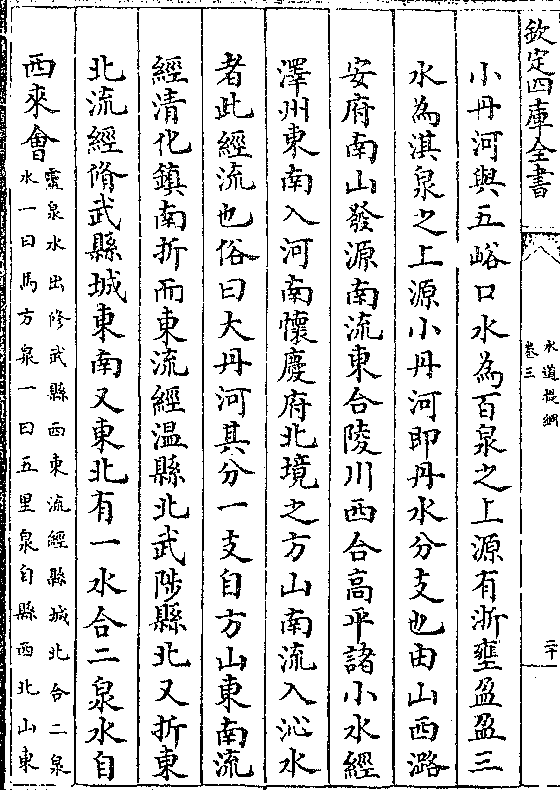 欽定四庫全書
水道提綱
卷三
二十
小丹河與五峪口水為百泉之上源有浙壅盈盈三
水為淇泉之上源小丹河即丹水分支也由山西潞
安府南山發源南流東合陵川西合高平諸小水經
澤州東南入河南懷慶府北境之方山南流入沁水
者此經流也俗曰大丹河其分一支自方山東南流
經清化鎮南折而東流經温縣北武陟縣北又折東
北流經脩武縣城東南又東北有一水合二泉水自
西來會
靈泉水出修武縣西東流經縣城北合二泉
水一曰馬方泉一曰五里泉自縣西北山東